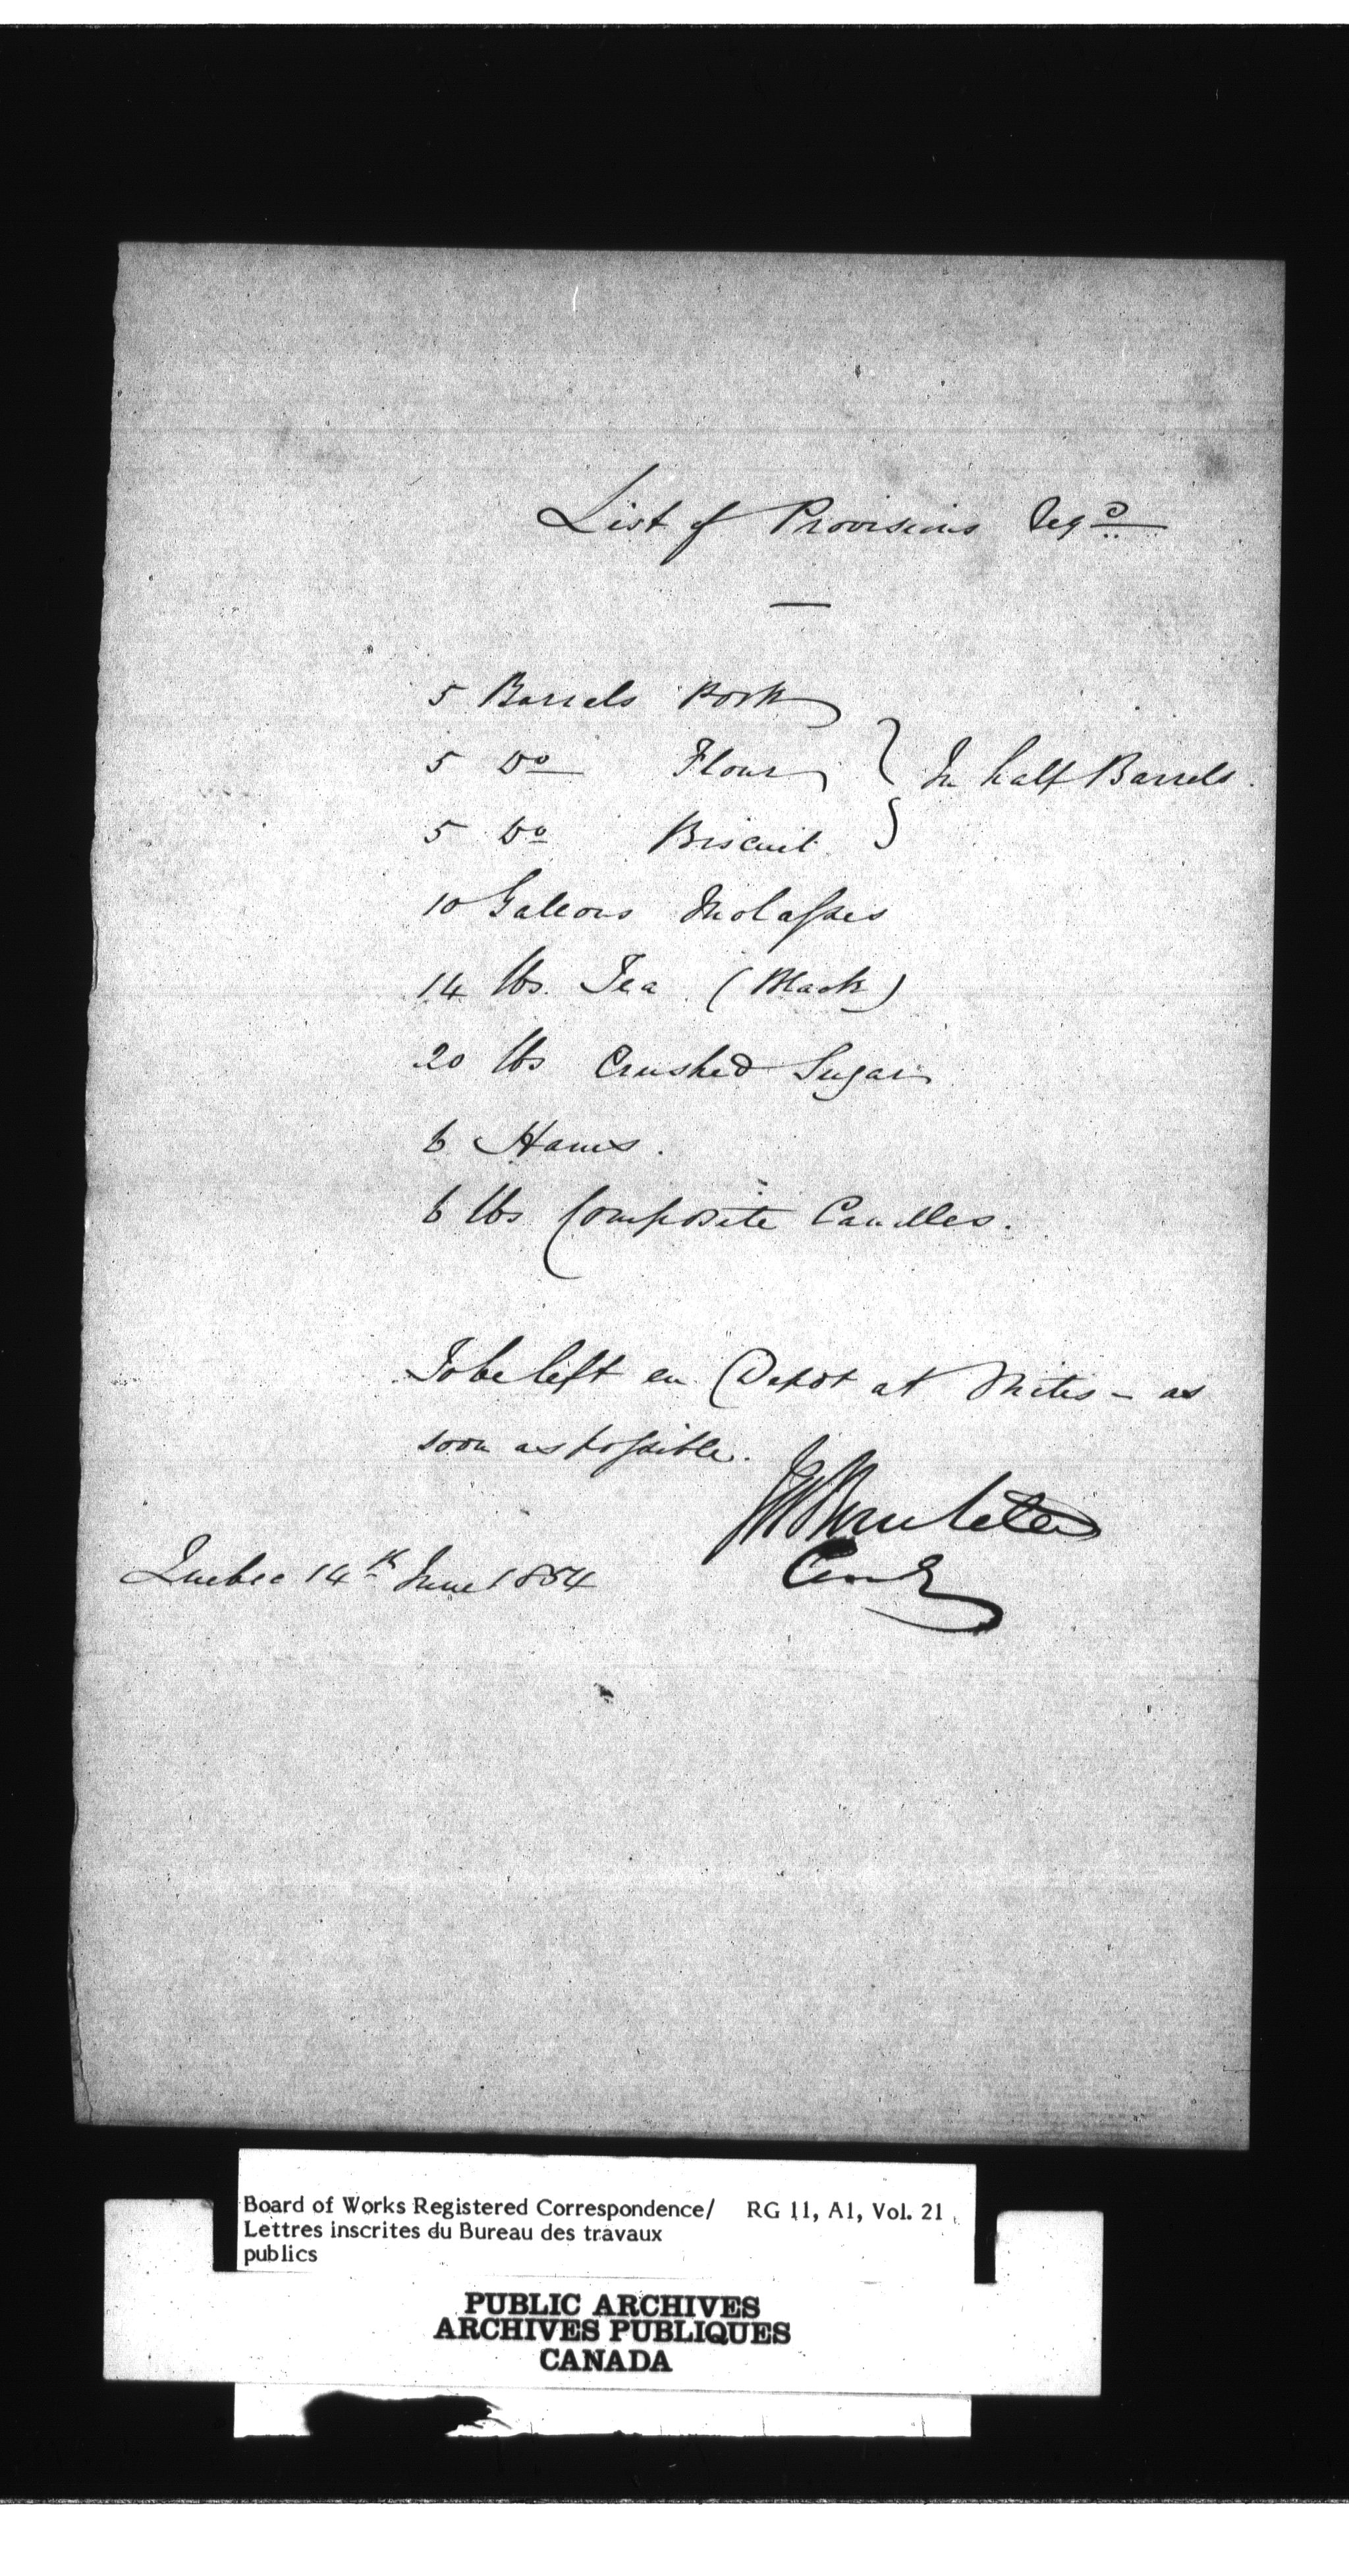 List of Provisions Reqd
5 Barrels Pork
5 Do Flour } In half Barrels.
5 Do Biscuit
10 Gallons Molasses
14 lbs. Tea (Black)
20 lbs Crushed Sugar
6 Hams.
6 lbs Composite Candles.
To be left en Depot at Mitis – as
soon as possible.
Quebec 14th June 1854
Board of Works Registered Correspondence/ RG 11, A1, Vol. 21
Lettres inscrites du Bureau des travaux
publics
PUBLIC ARCHIVES
ARCHIVES PUBLIQUES
CANADA